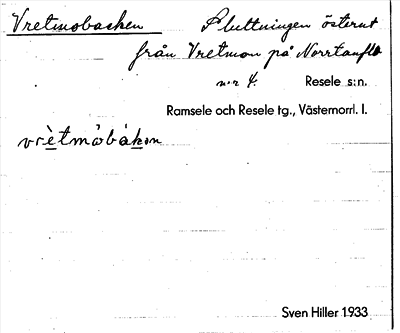 Vretmobacken Sluttningen österut
från Vretmon på Norrtanflo
n:r 4. Resele s:n.
Ramsele och Resele tg., Västernorrl. l.
vrètmòbàkɷn
Sven Hiller 1933